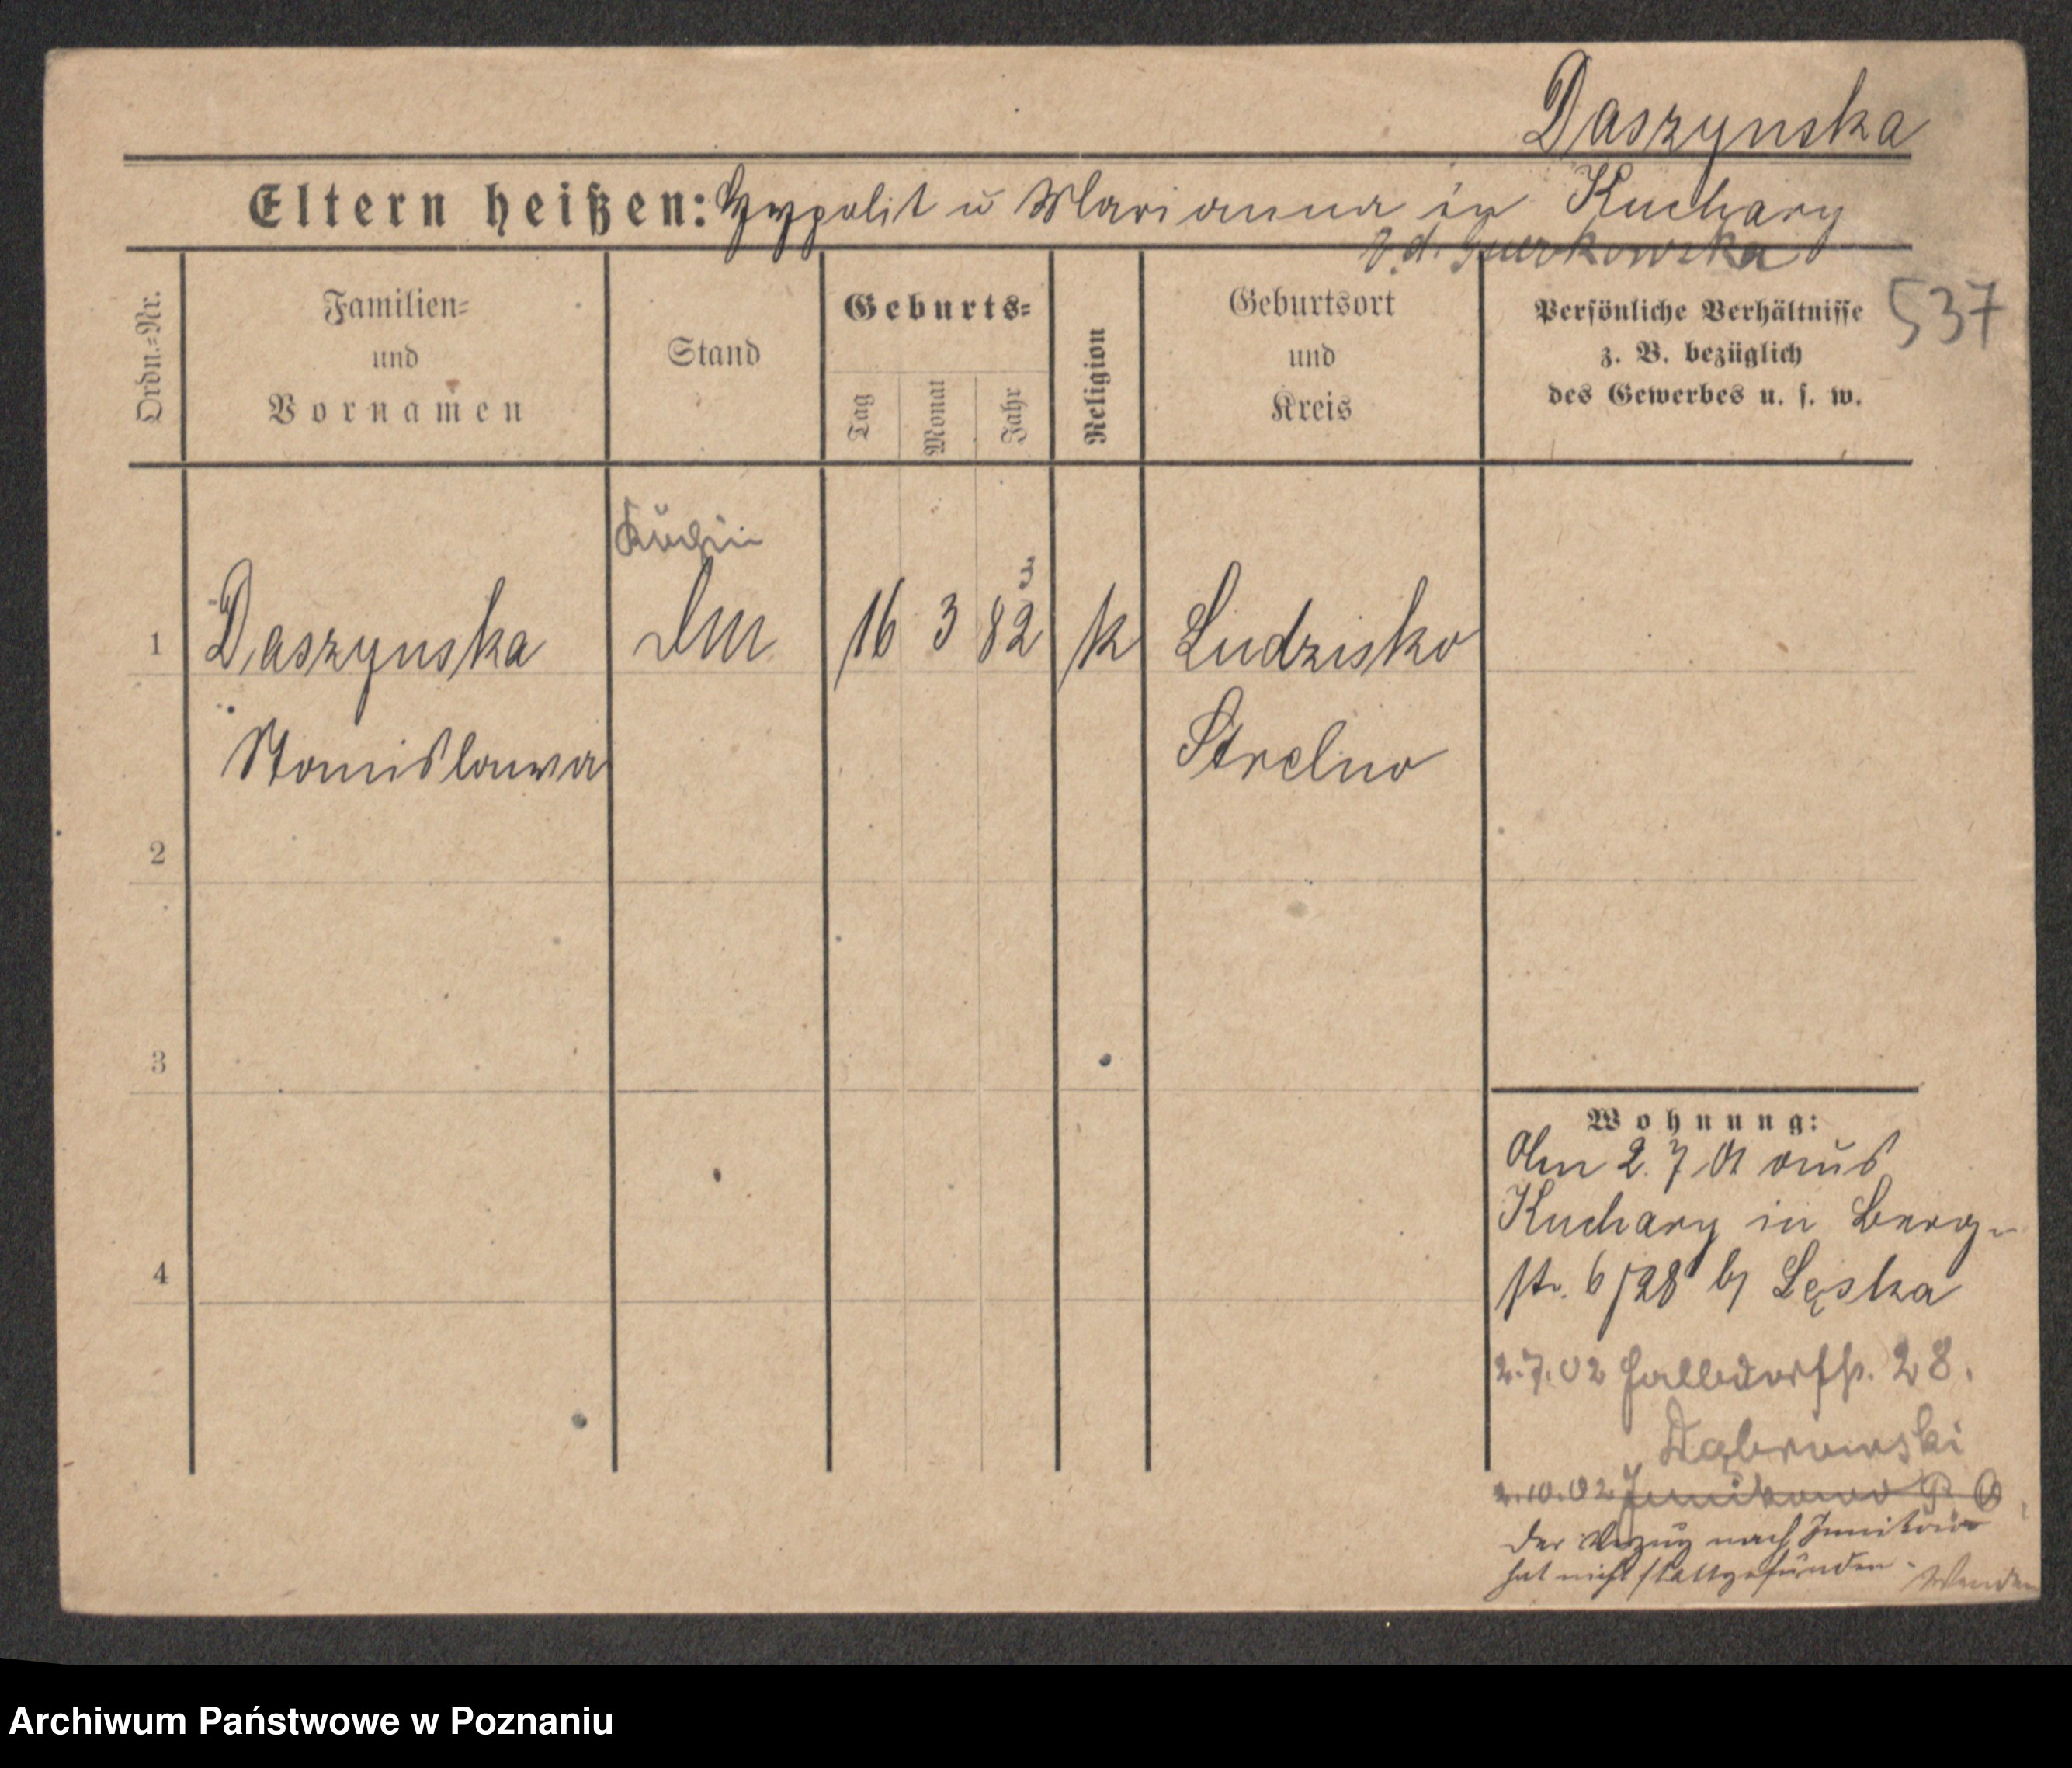 Daszynska
Eltern heißen: Hypolit u Marianna in Kuchary
537
Ordn.-Nr.
Familien-
und
Vornamen
Stand
Geburts-
Tag
Monat
Jahr
Religion
Geburtsort
und
Kreis
Persönliche Verhältnisse
z. B. bezüglich
des Gewerbes u. s. w.
Köchin
3
1 Daszynska Dm 16 3 82 k Ludzisko
Stanislawa Strelno
2
3
4
Wohnung:
Am 2. 7 01 aus
Kuchary in Berg-
str. 6 /28 b/ Leska
2.7.02 Halbdorfstr. 28.
Dąbrowski
2.10.02 Junikowo P. O.
Der Verzug nach Junikowo
hat nicht stattgefunden.
Wenden
Archiwum Państwowe w Poznaniu